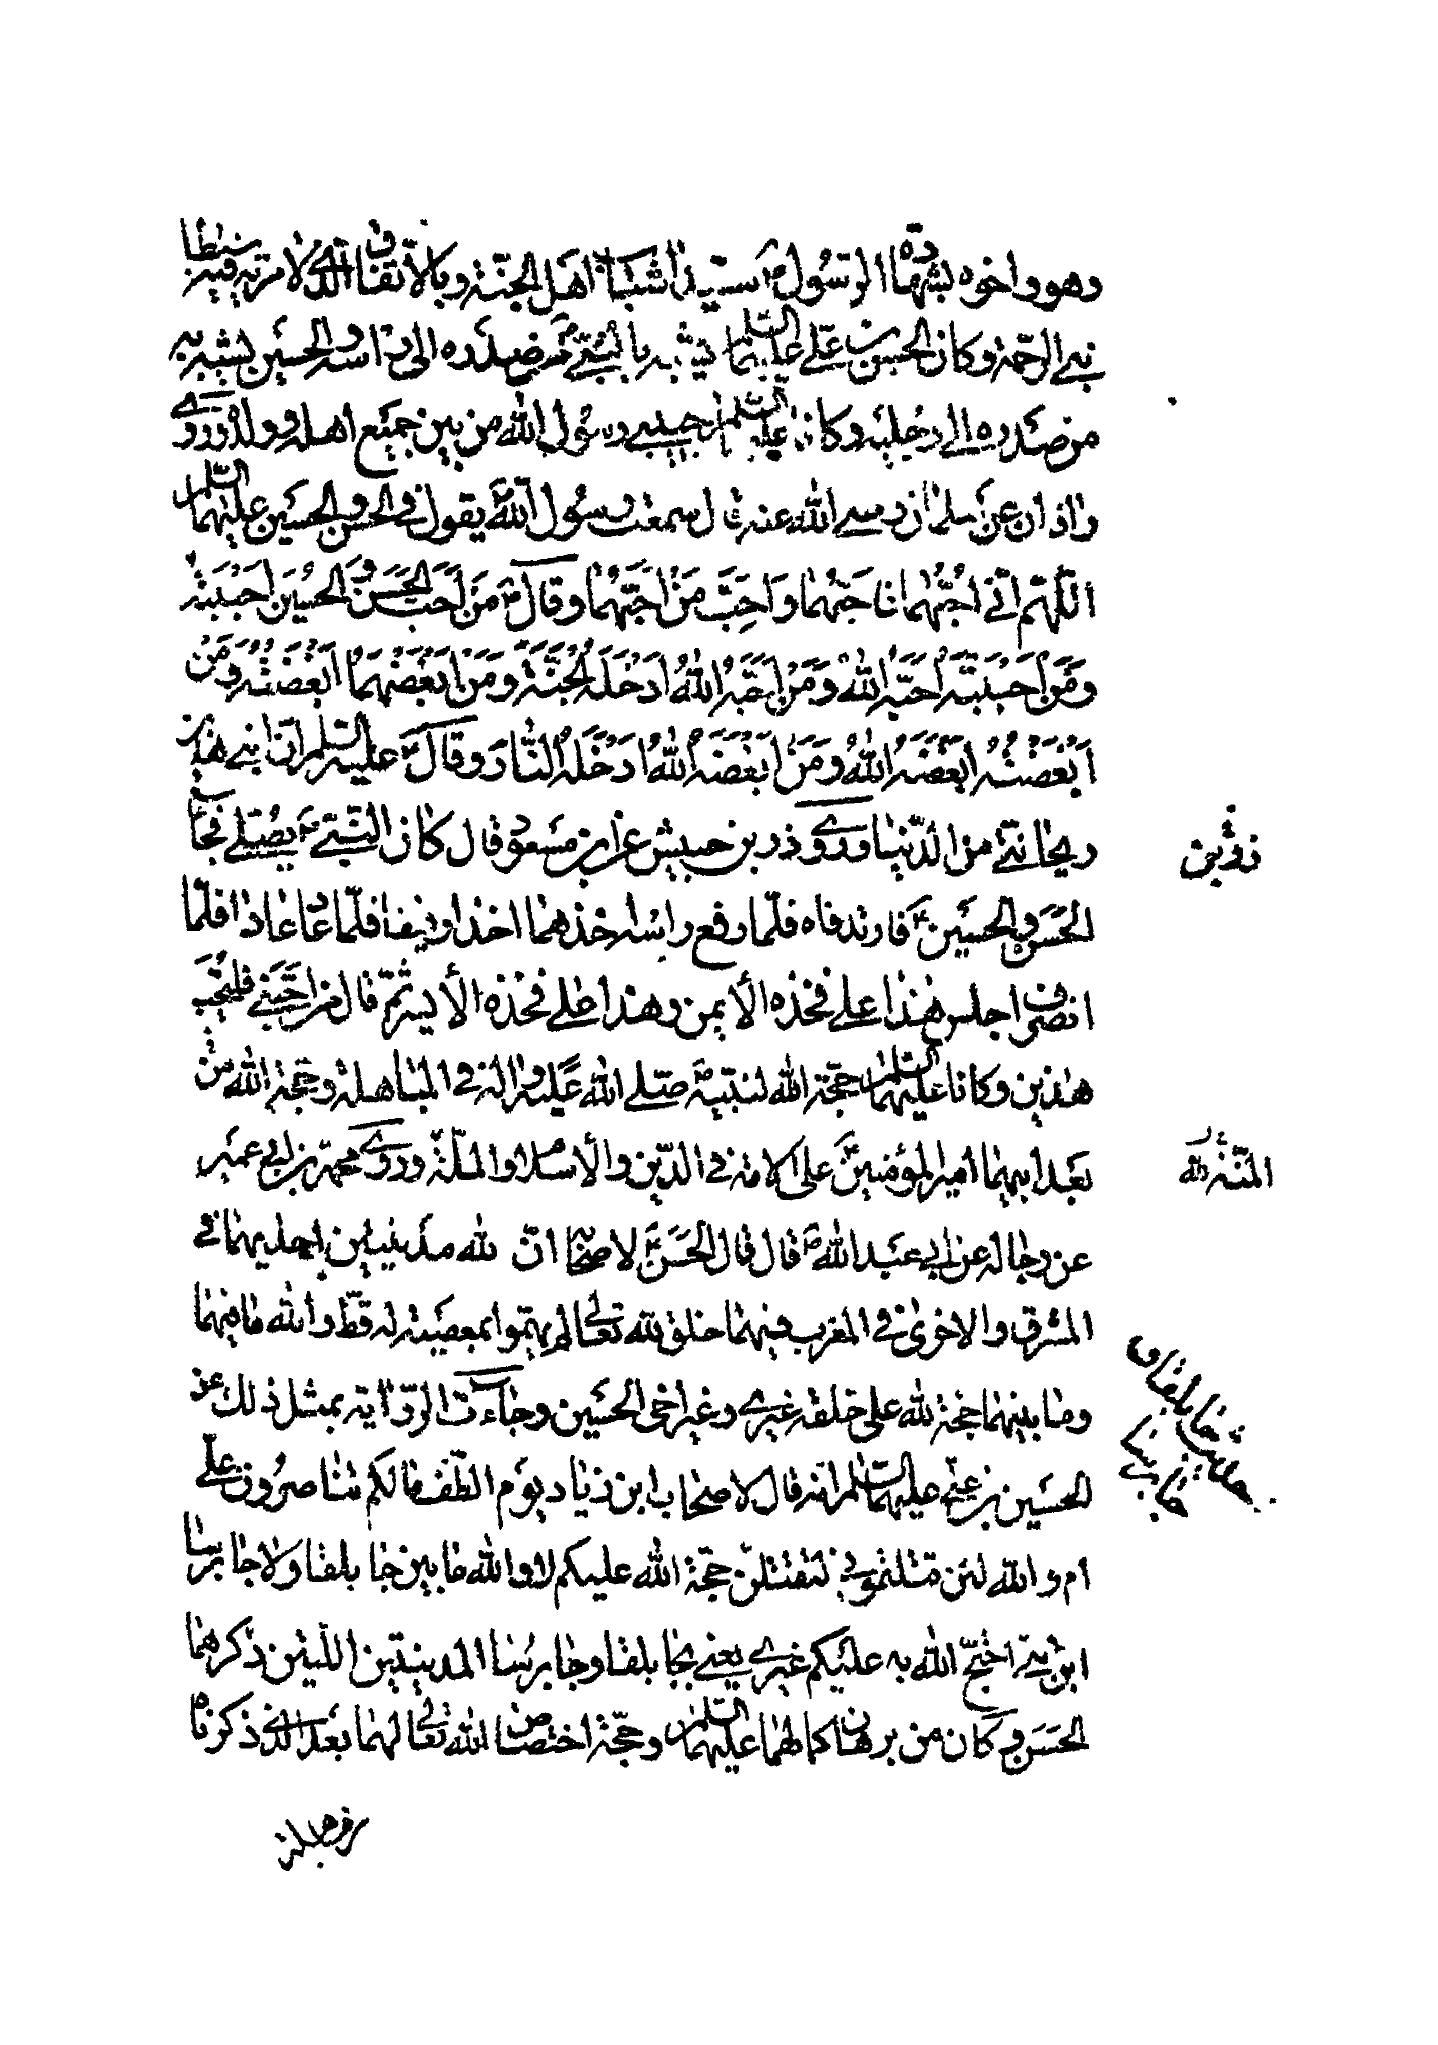 وهو واخوه بشهادة الرسول ص سيدا شباب اهل الجنة وبالاتفاق الذي لا مرية فيه سبطا
نبي الرحمة وكان الحسن بن علي عليهما السلم يشبه بالنبي ص من صدره الى راسه والحسين يشبه به
من صدره الى رجليه وكانا عليهما السلم حبيبي رسول الله من بين جميع اهله وولده وروى
زاذان عن سلمان رضي الله عنه قال سمعت رسول الله ص يقول في الحسن والحسين عليهما السلم
اللهم اني احبهما فاحبهما واحب من احبهما وقال ص من احب الحسن والحسين احببته
ومن احببته احبه الله ومن احبه الله ادخله الجنة ومن ابغضهما ابغضته ومن
ابغضته ابغضه الله ومن ابغضه الله ادخله النار وقال ص عليه السلم ان ابني هذين
ريحانتي من الدنيا وروى زر بن حبيش عن ابن مسعود قال كان النبي ص يصلي فجاء
الحسن والحسين ع فارتدفاه فلما رفع راسه اخذهما اخذا رفيقا فلما عاد عادا فلما
انصرف اجلس هذا على فخذه الأيمن وهذا على فخذه الأيسر ثم قال من احبني فليحب
هذين وكانا عليهما السلم حجة الله لنبيه ص صلى الله عليه واله في المباهلة وحجة الله من
بعد ابيهما امير المؤمنين ع على الامة في الدين والأسلام والملة وروى محمد بن ابي عمير
عن رجاله عن ابي عبد الله ع قال قال الحسن ع لاصحابه ان لله مدينتين احديهما في
المشرق والاخرى في المغرب فيهما خلق لله تعالى لم يهموا بمعصية له قط والله ما فيهما
وما بينهما حجة لله على خلقه غيري وغير اخي الحسين وجاءت الرواية بمثل ذلك عن
الحسين بن علي عليهما السلم انه قال لاصحاب ابن زياد يوم الطف مالكم تناصرون علي
ام والله لئن قتلتموني لتقتلن حجة الله عليكم لا والله ما بين جابلقا ولا جابرسا
ابن نبي احتج الله به عليكم غيري يعني بجابلقا وجابرسا المدينتين اللتين ذكرهما
الحسن ع وكان من برهان كمالهما عليهما السلم وحجة اختصاص الله تعالى لهما بعد الذي ذكرناه
من مباهلة
المنة لله